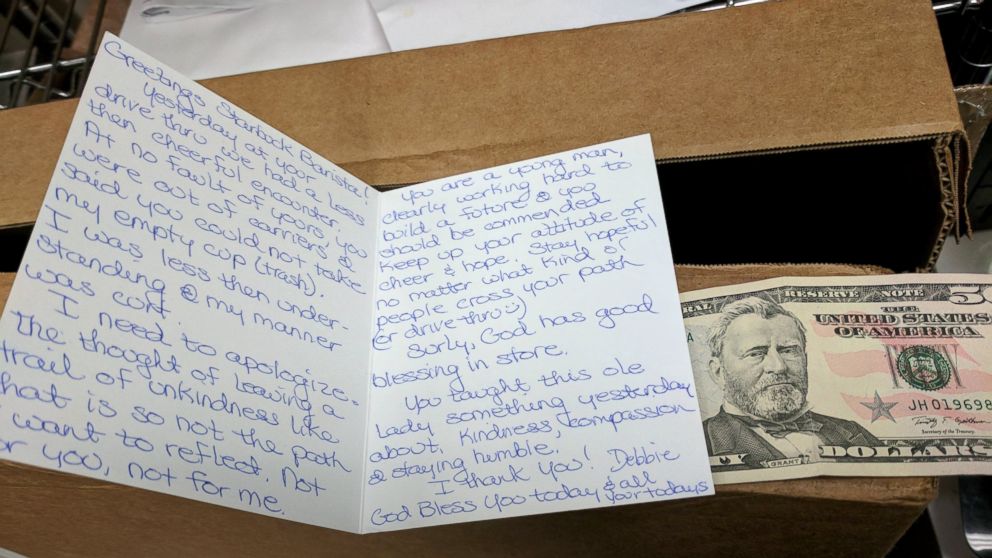 Greetings Starbuck Barista!
Yesterday at your
drive thru we had a less
then cheerful encounter.
At no fault of yours, you
were out of carriers &
said you could not take
my empty cup (trash).
I was less then under-
standing & my manner
was curt.
I need to apologize-
the thought of leaving a
trail of unkindness like
that is so not the path
I want to reflect. Not
for you, not for me.
You are a young man,
clearly working hard to
build a future & you
should be commended
Keep up your attitude of
cheer & hope. Stay hopeful
no matter what kind of
people cross your path
(or drive thru☺)
Surly, God has good
blessing in store.
You taught this ole
Lady something yesterday
about, Kindness, compassion
& staying humble.
I thank you! Debbie
God Bless you today & all
your todays
RESERVE NOTE
50
THE
UNITED STATES
OF AMERICA
JH 019698
Secretary of the Treasury.
GRANT
DOLLARS